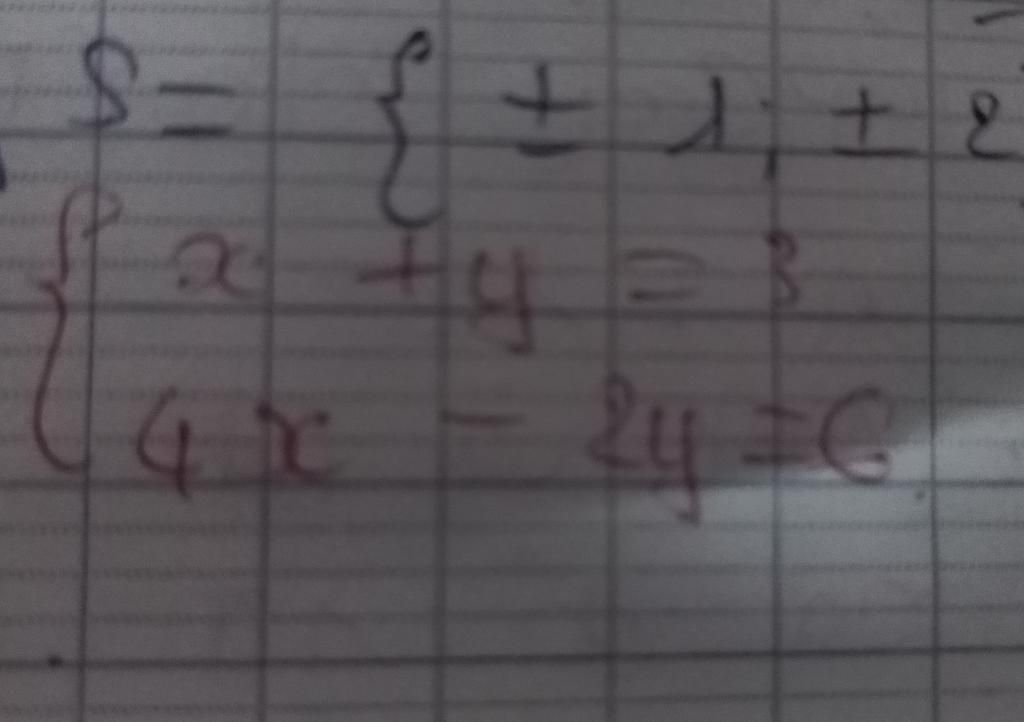 S = { ± 1 ; ± 2
{ x + y = 3
4x - 2y = 6